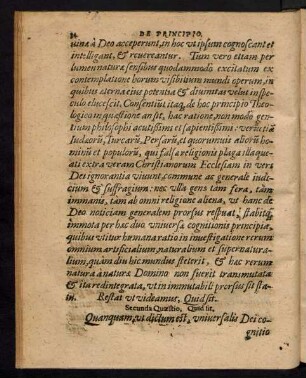 34 DE PRINCIPIO.
uinæ à Deo acceperunt, in hoc vt ipsum cognoscant et
intelligant, & reuereantur. Tum vero etiam per
lumen naturæ sensibus quodammodo excitatum ex
contemplatione horum visibilium mundi operum, in
quibus æterna eius potentia & diuinitas velut in spe-
culo elucescit. Consentiūt itaq, de hoc principio Theo-
logico in quæstione an sit, hac ratione, non modo gen-
tium philosophi acutissimi et sapientissimi: verū etiā
Iudæorū, Turcarū, Persarū, et quorumuis aliorū ho-
minū et populorū, qui falsa religionis plaga illaquea-
ti extra veram Christianorum Ecclesiam in vera
Dei ignorantia viuunt, commune ac generale iudi-
cium & suffragium: nec vlla gens tam fera, tàm
immanis, tam ab omni religione aliena, vt hanc de
Deo noticiam generalem prorsus respuat. stabitq,
immota per hæc duo vniuersa cognitionis principia,
quibus vtitur humana ratio in inuestigatione rerum
omnium artificialium, naturalium et supernatura-
lium, quàm diu hic mundus steterit, & hæc rerum
natura à naturæ Domino non fuerit transmutata
& ita redintegrata, vt in immutabili prorsus sit sta-
tu. Restat vt videamus, Quid sit.
Secunda Quæstio, Quid sit.
Quanquam, vt dictum est, vniuersalis Dei co-
gnitio